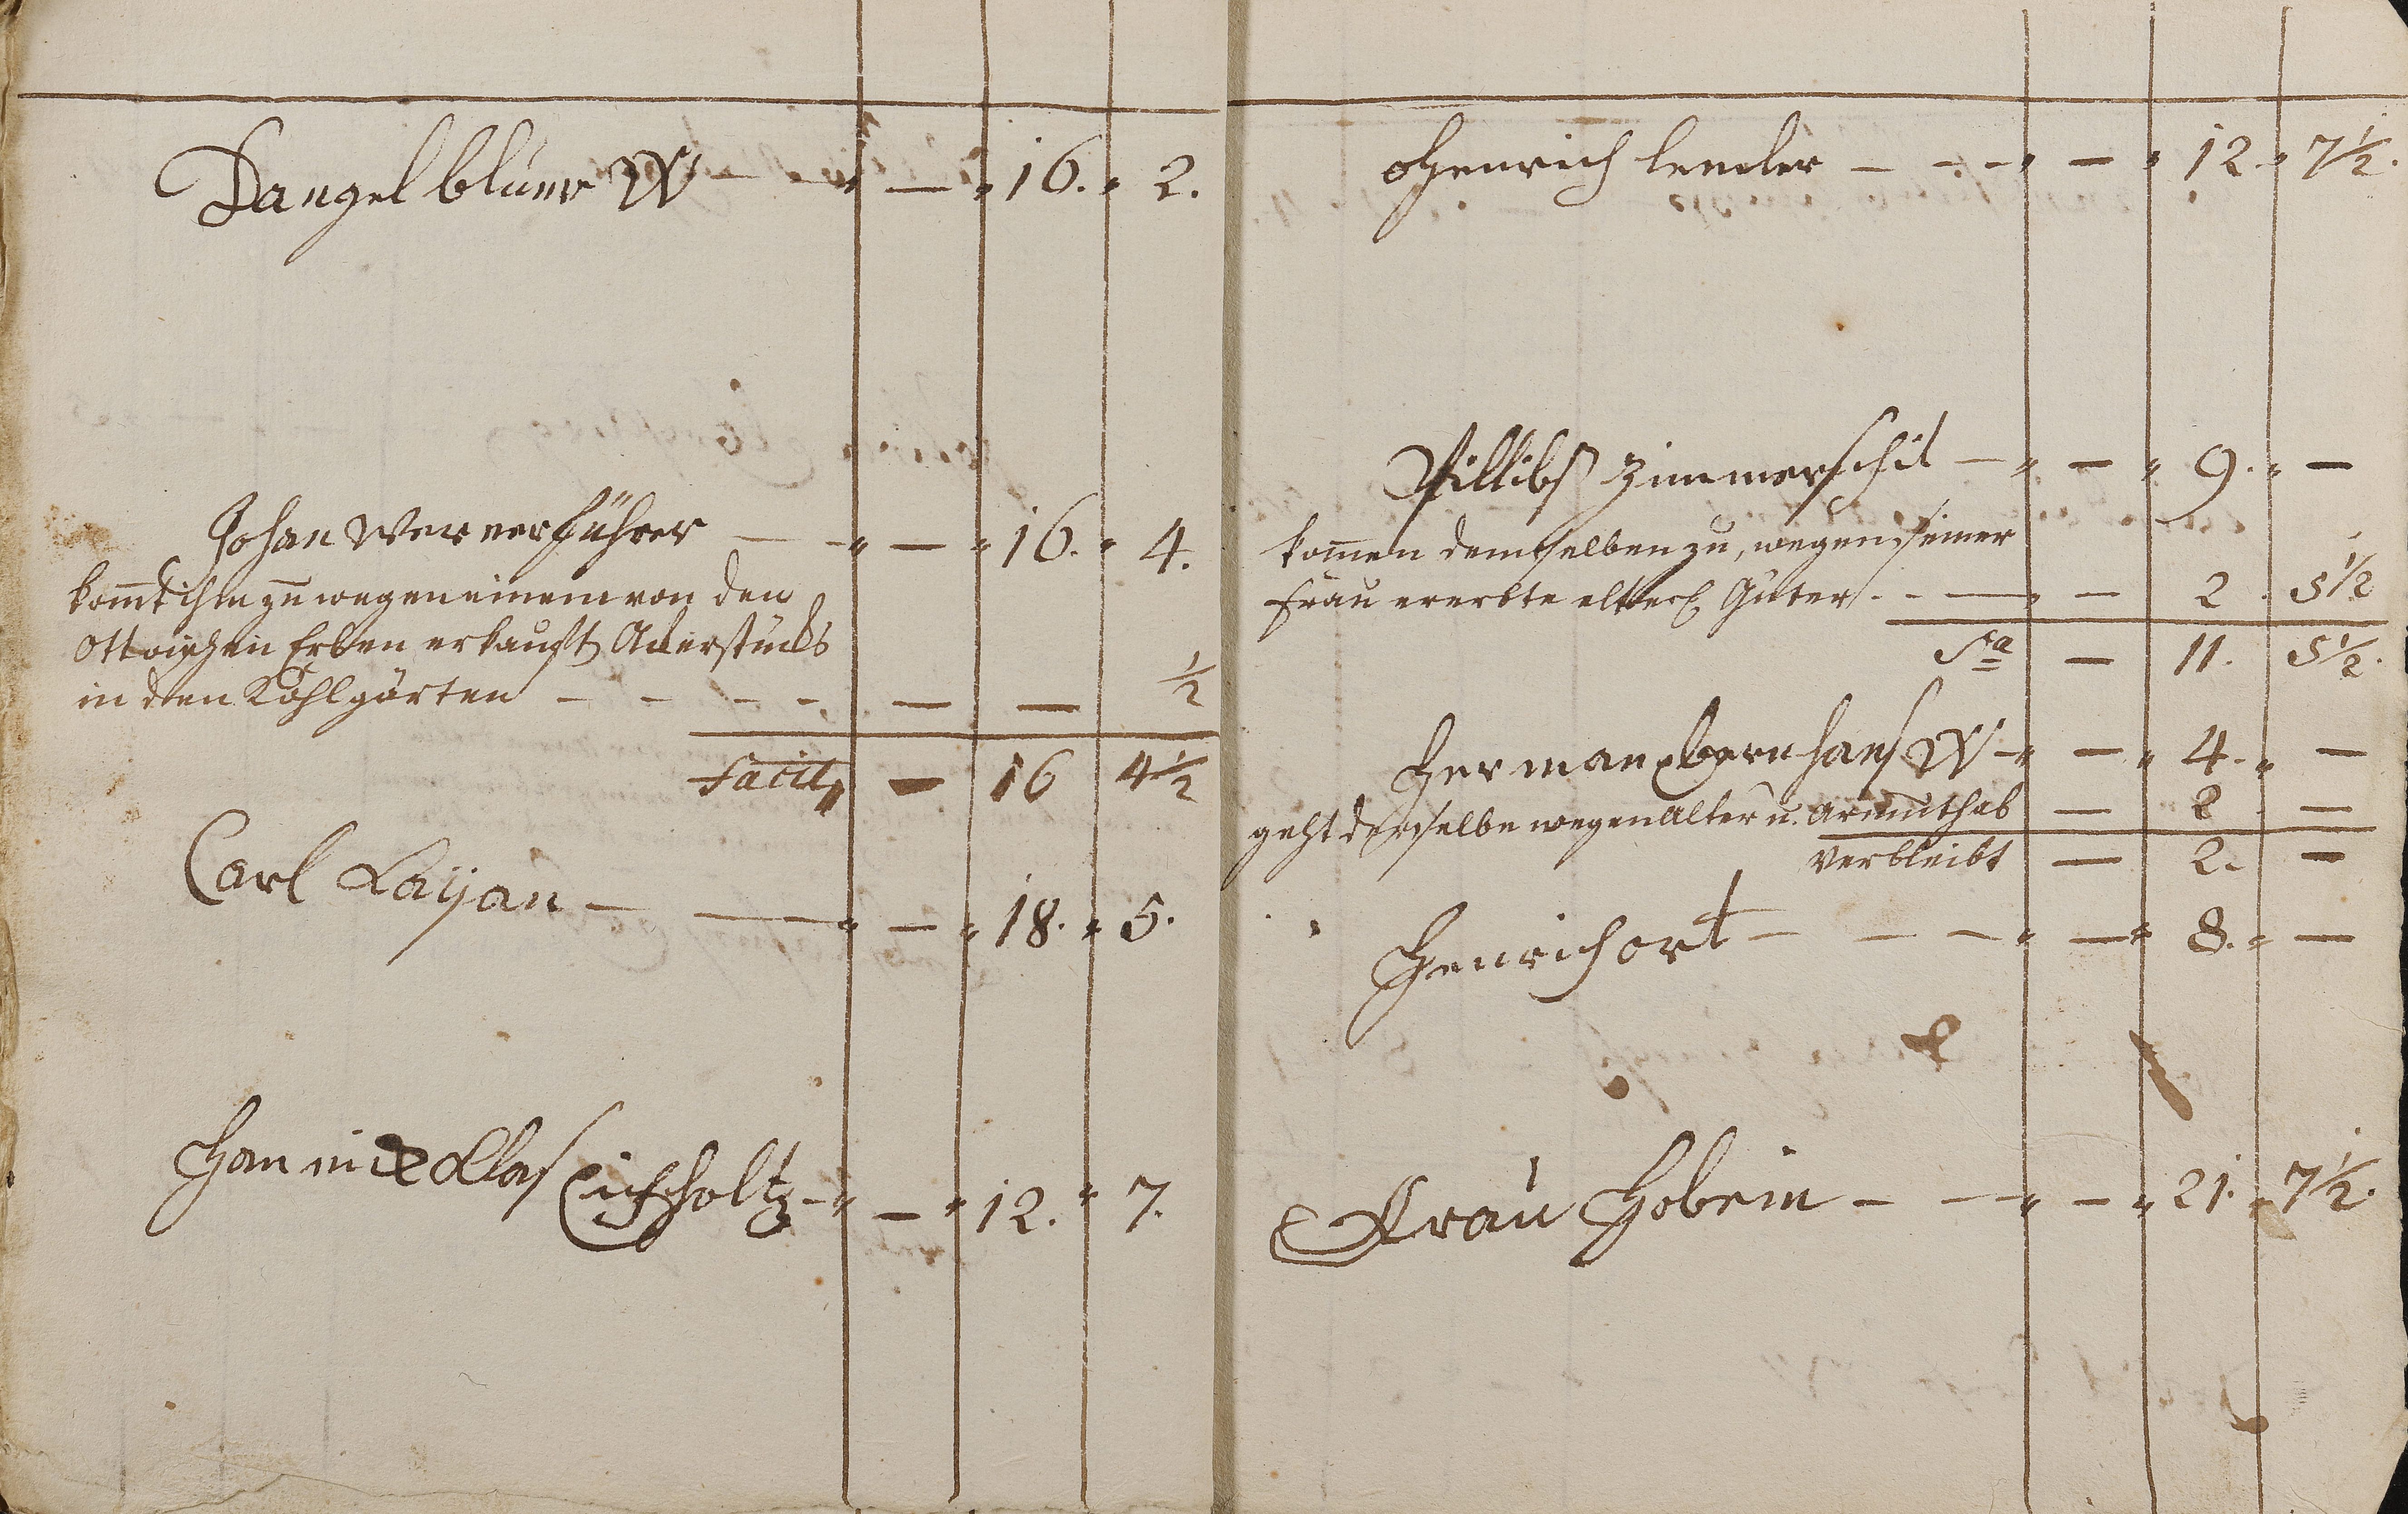 Dangel blüms W — — — 16. 2.
Johan Werner führer — — — 16. 4.
komt ihm zu wegen einem von den
Ottoischen Erben erkauft Ackerstücks
in den Kohlgärten — — — — — — ½
Facit — 16 4½
Carl Laÿan — — — 18. 5.
Han nick Clas Eichholtz — — 12. 7.
Henrich lender — — — — 12. 7½.
Fillibs Zimmerschit — — 9. —
komen demselben zu, wegen seiner
Frau ererbte elterl. Güter — — — 2. 5½
Sa — 11. 5½.
Herman bernhars W — — 4. —
geht derselbe wegen Alter u. Armuth ab — 2 —
verbleibt — 2. —
Henrich ort — — — — 8. —
Frau Hobein — — — 21. 7½.